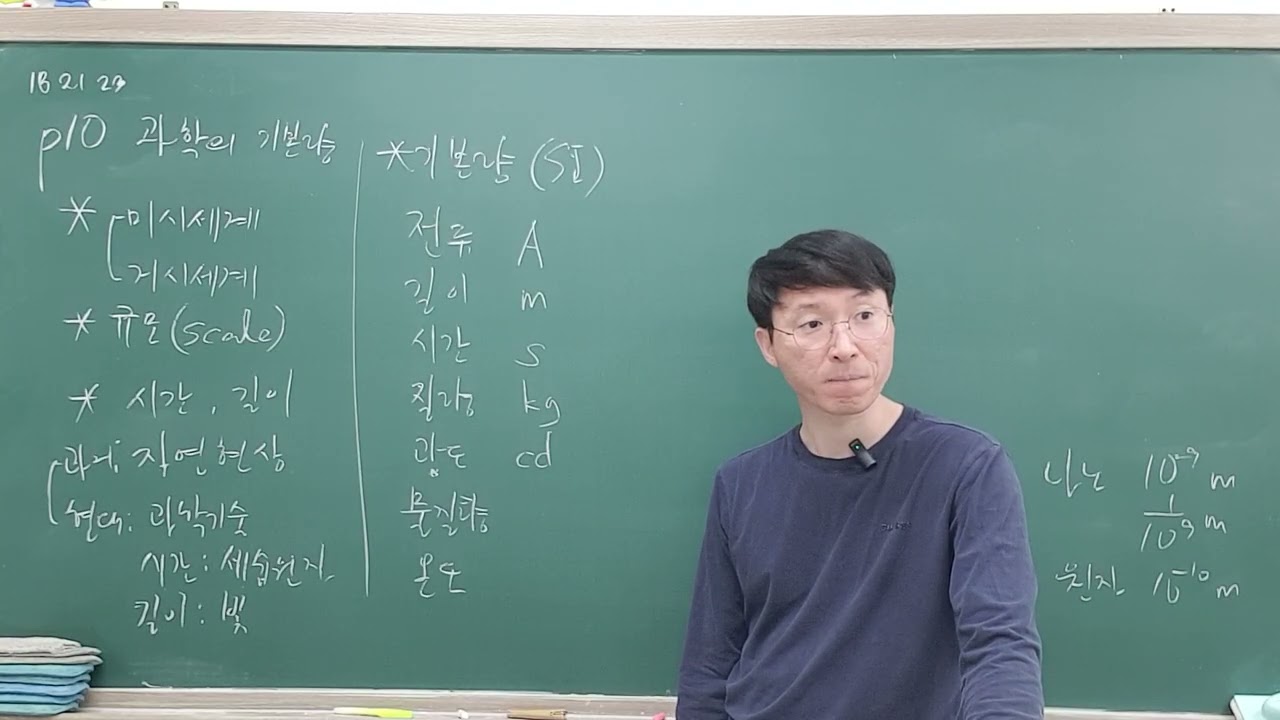 18 21 23
p10 과학의 기본량
* 미시세계
거시세계
* 규모(scale)
* 시간, 길이
과거: 자연현상
현대: 과학기술
시간: 세슘원자
길이: 빛
*기본량(SI)
전류 A
길이 m
시간 s
질량 kg
광도 cd
물질량
온도
나노 10⁻⁹ m
1/10⁹ m
원자 10⁻¹⁰ m